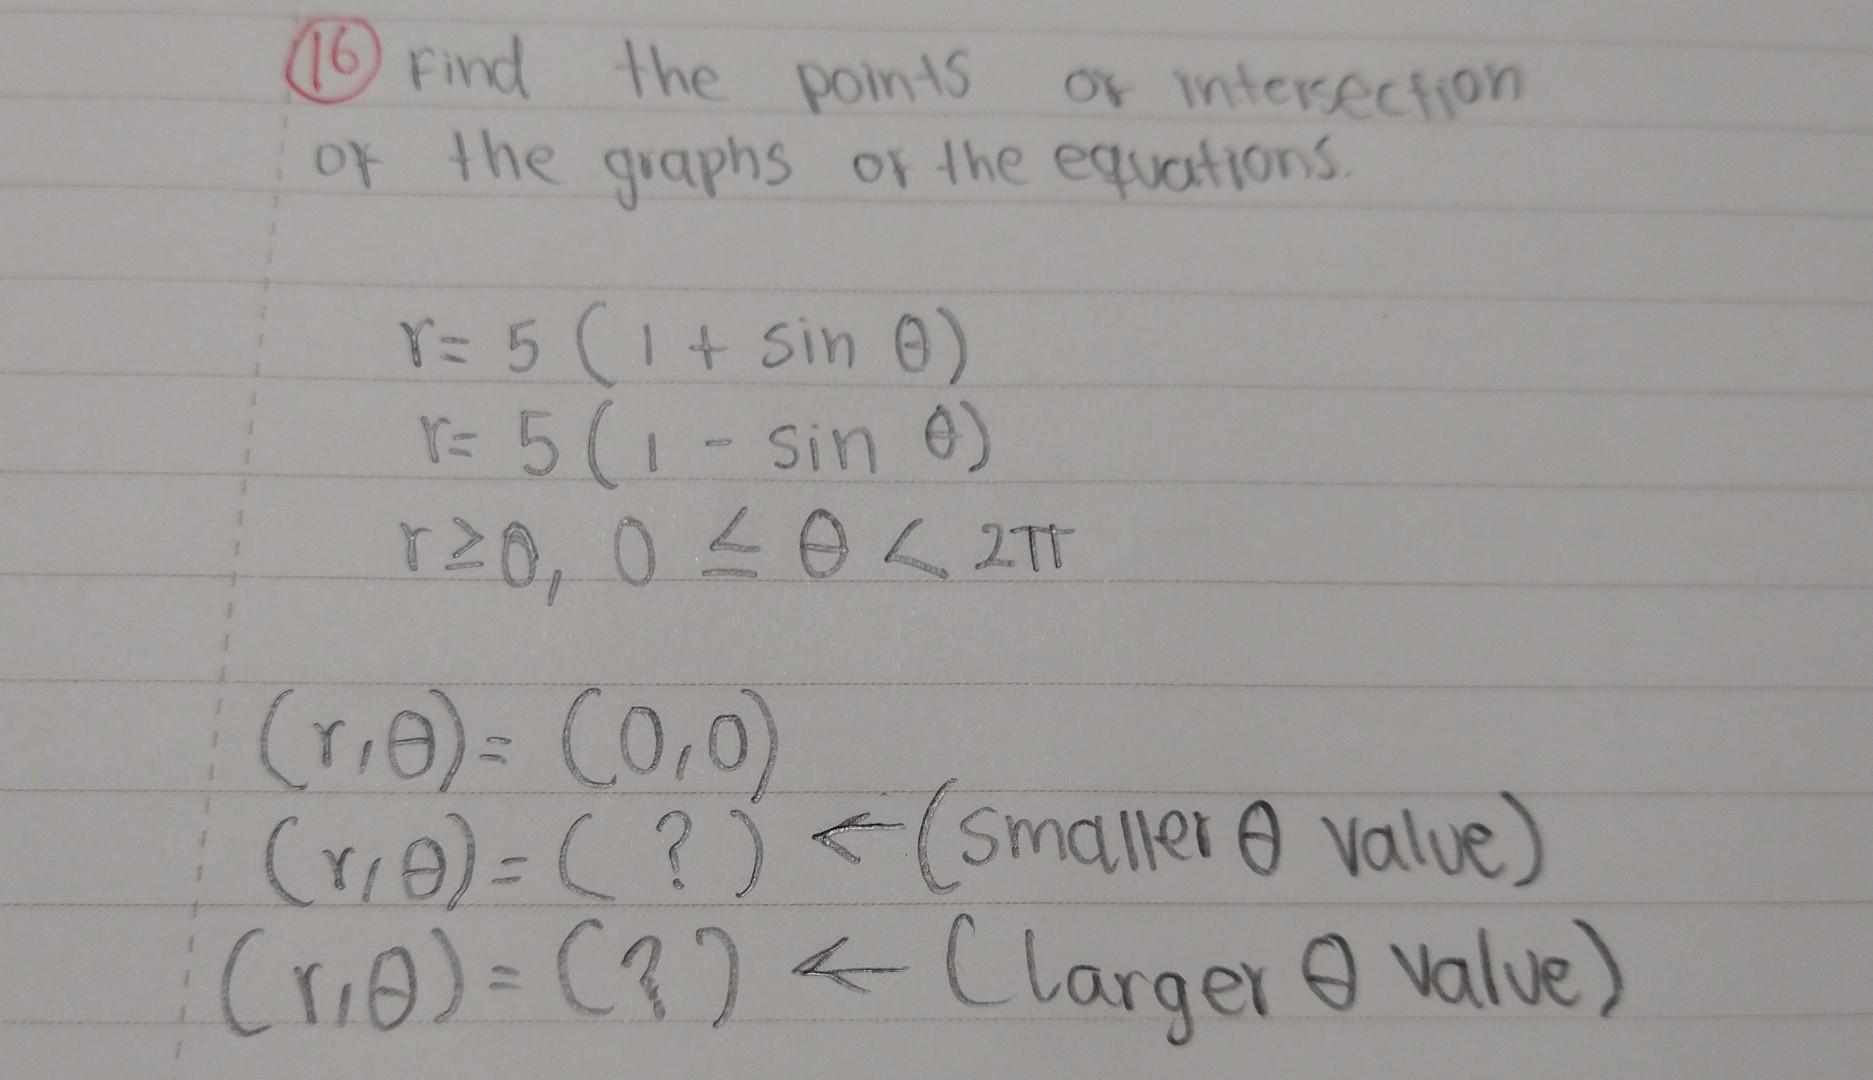 16 Find the points of intersection
of the graphs of the equations.
r = 5 ( 1 + sin θ)
r = 5 ( 1 - sin θ)
r ≥ 0, 0 ≤ θ < 2π
(r,θ) = (0,0)
(r,θ) = ( ? ) ← (smaller θ value)
(r,θ) = (?) ← (larger θ value)